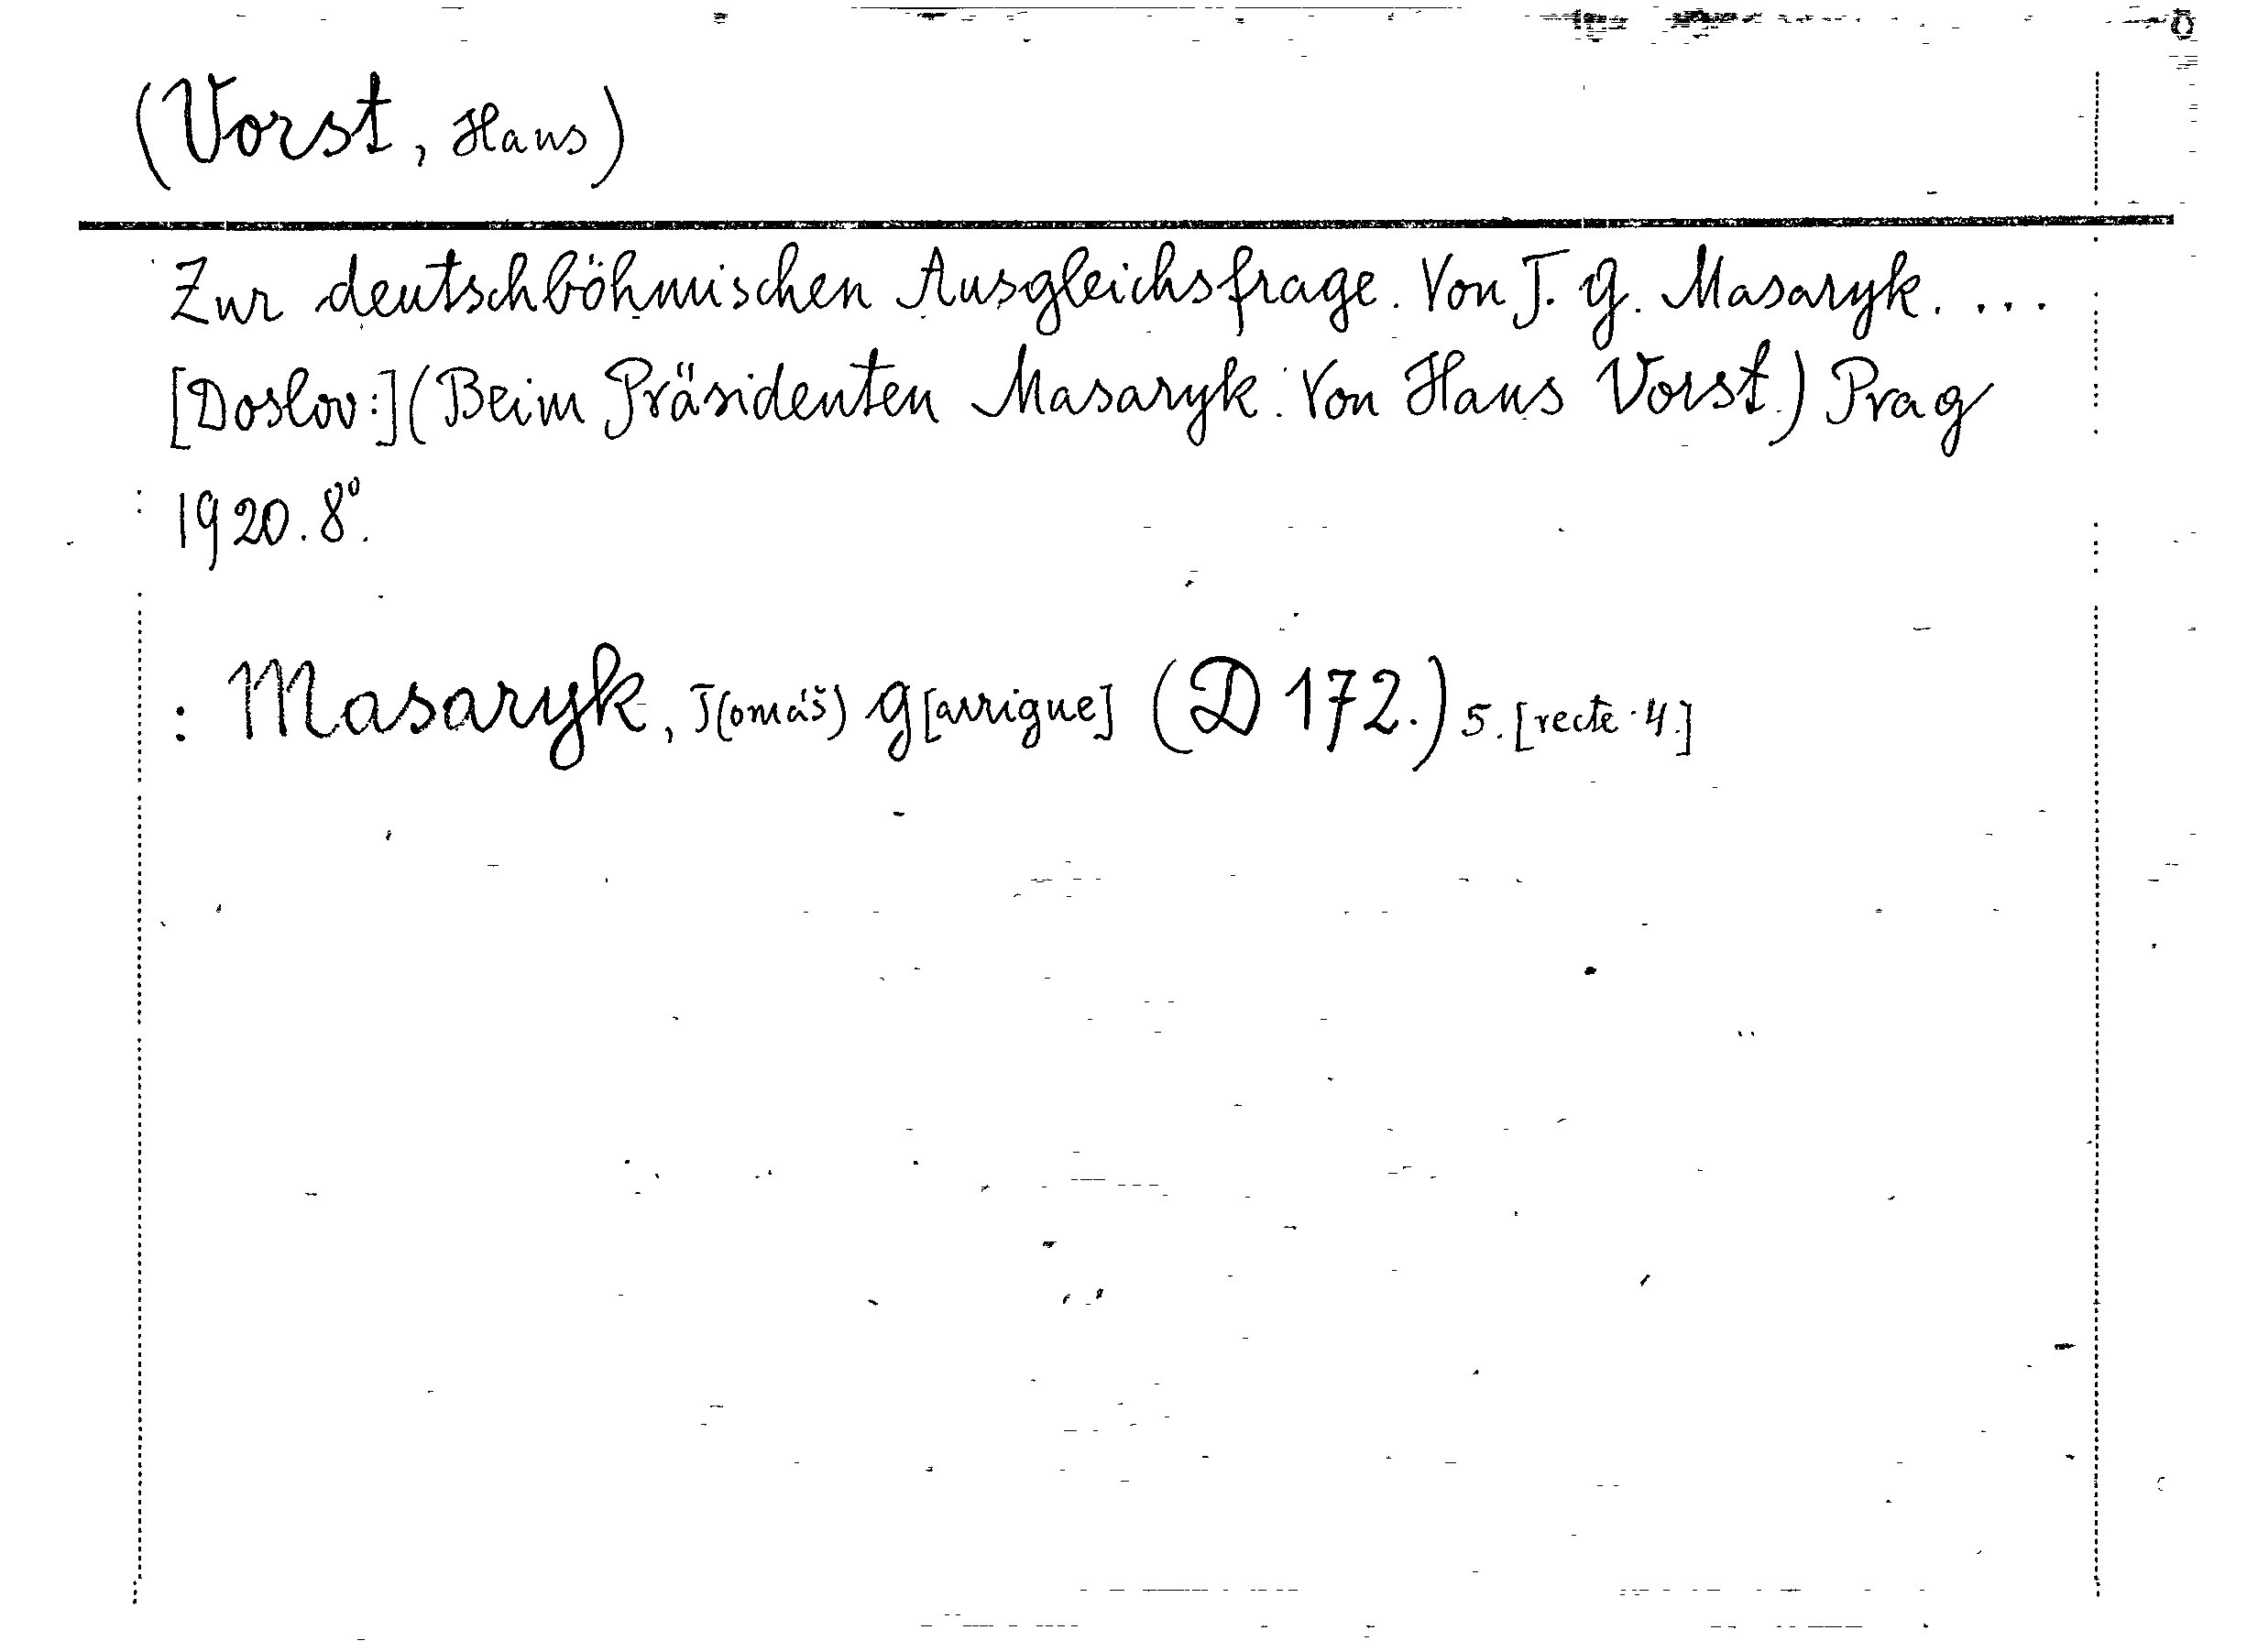 (Vorst, Hans)
Zur deutschböhmischen Ausgleichsfrage. Von T. G. Masaryk. ...
[Doslov:] (Beim Präsidenten Masaryk. Von Hans Vorst.) Prag
1920. 8°.
: Masaryk, T(omáš) G[arrigue] (D 172.) 5. [recte 4.]